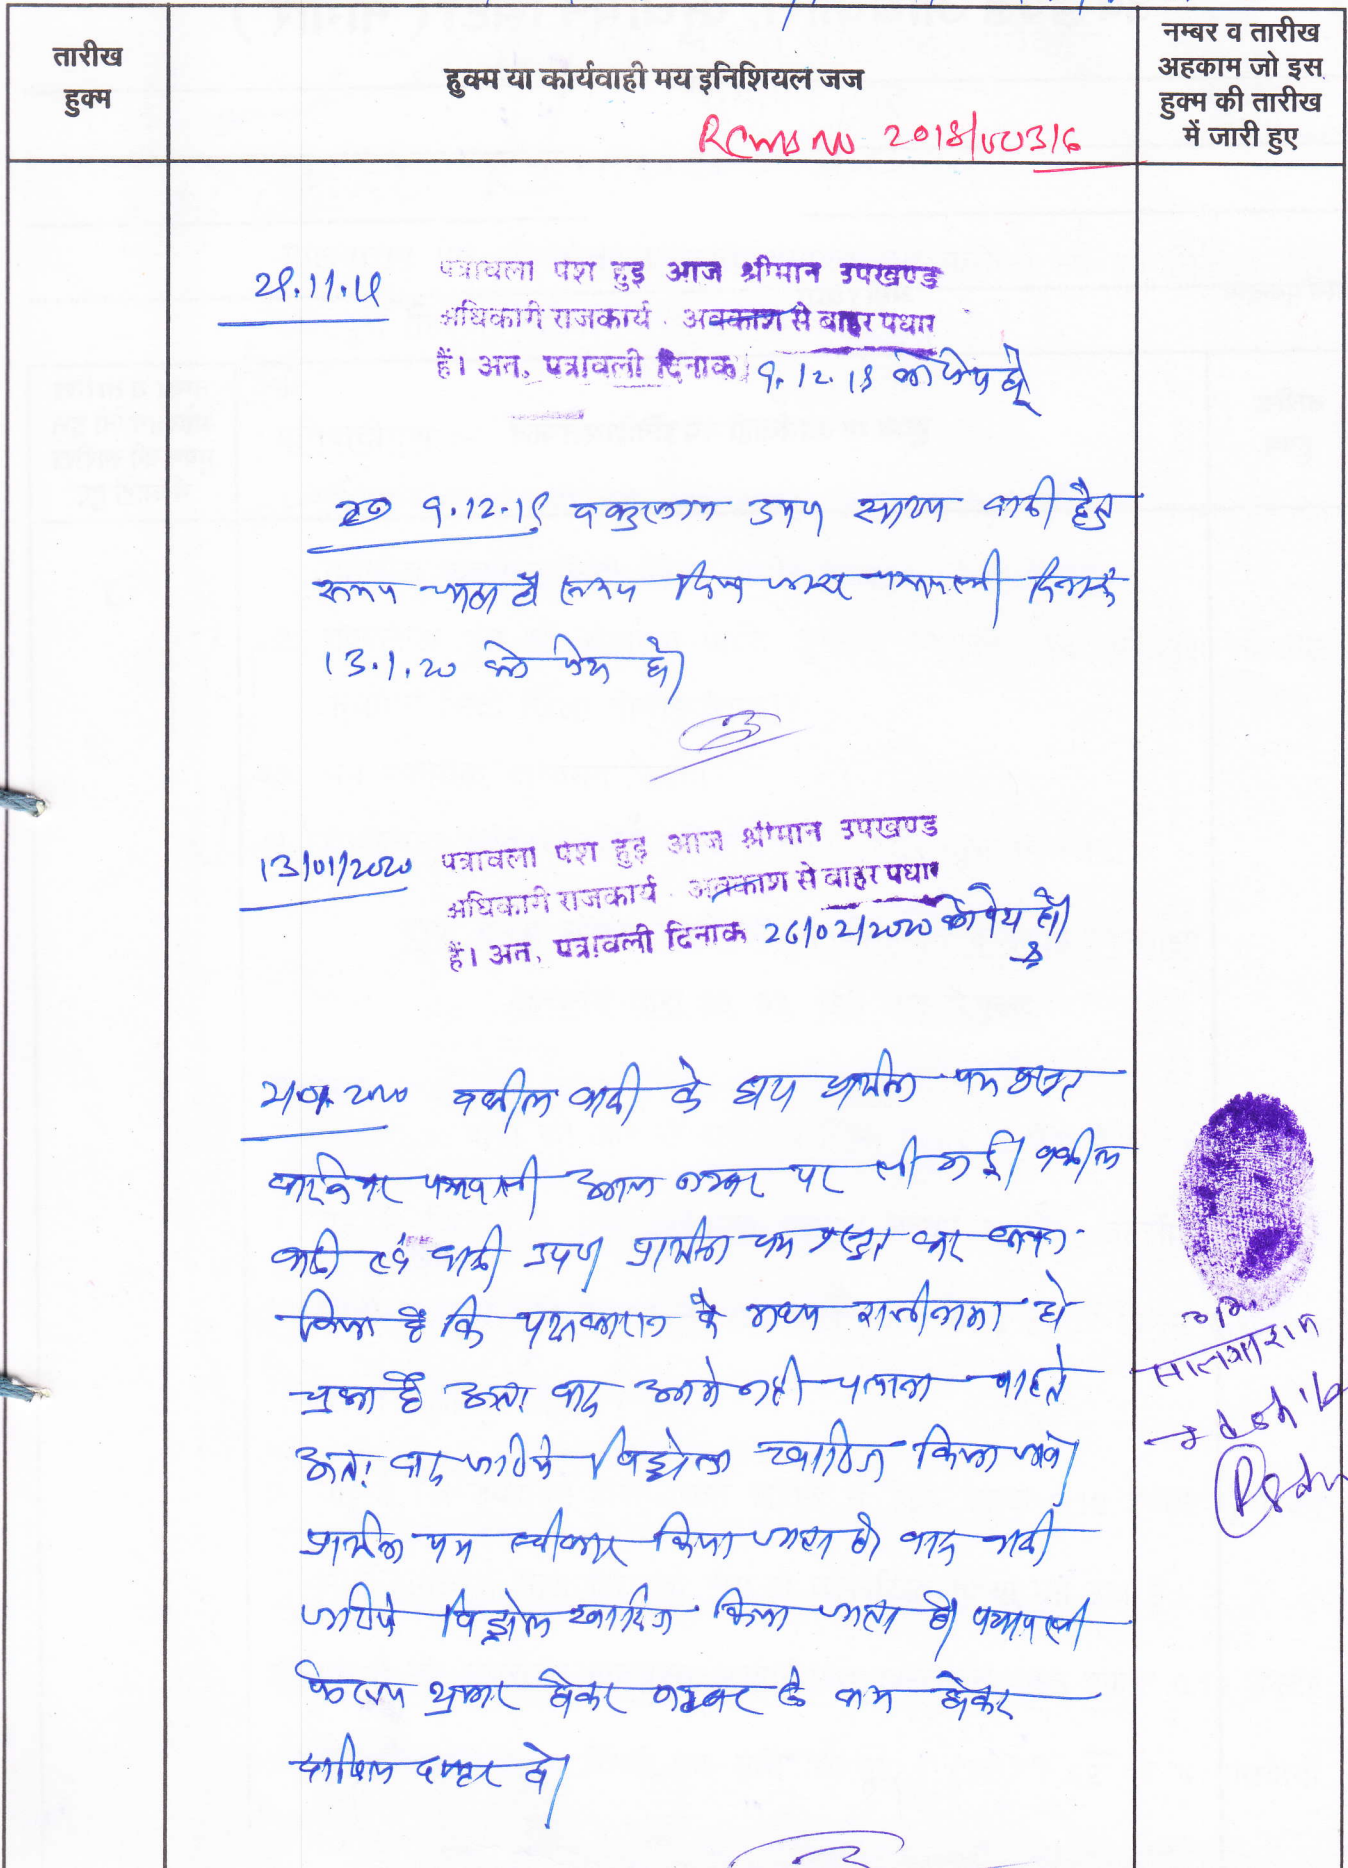 तारीख
हुक्म
हुक्म या कार्यवाही मय इनिशियल जज
नम्बर व तारीख
अहकाम जो इस
हुक्म की तारीख
में जारी हुए
RCMS NO 2018/00316
पत्रावली पेश हुई आज श्रीमान उपखण्ड
अधिकारी राजकार्य अवकाश से बाहर पधार
हैं। अत. पत्रावली दिनांक 9.12.19 को पेश हो
9.12.19 वकुलाय उपण साक्ष्य वादी हेतु
समय चाहा है समय दिया जाकर पत्रावली दिनांक
13.1.20 को पेश हो।
13/01/2020
पत्रावली पेश हुई आज श्रीमान उपखण्ड
अधिकारी राजकार्य अवकाश से बाहर पधार
हैं। अत. पत्रावली दिनांक 26/02/2020 को पेश हो।
वकील वादी के द्वारा प्रार्थना पत्र प्रस्तुत
पत्रावली आज नम्बर पर ली गई। वकील
वादी एवं वादी उपण प्रार्थना पत्र प्रस्तुत कर कथन
किया है कि पक्षकारान के मध्य राजीनामा हो
चुका है अतः वाद आगे नही चलाना चाहते
अतः वाद जरिये विड्रोल खारिज किया जावे।
प्रार्थना पत्र स्वीकार किया जाता है। वाद वादी
जरिये विड्रोल खारिज किया जाता है। पत्रावली
फैसल शुमार होकर नम्बर से कम होकर
दाखिल दफ्तर हो।
सालगाराम